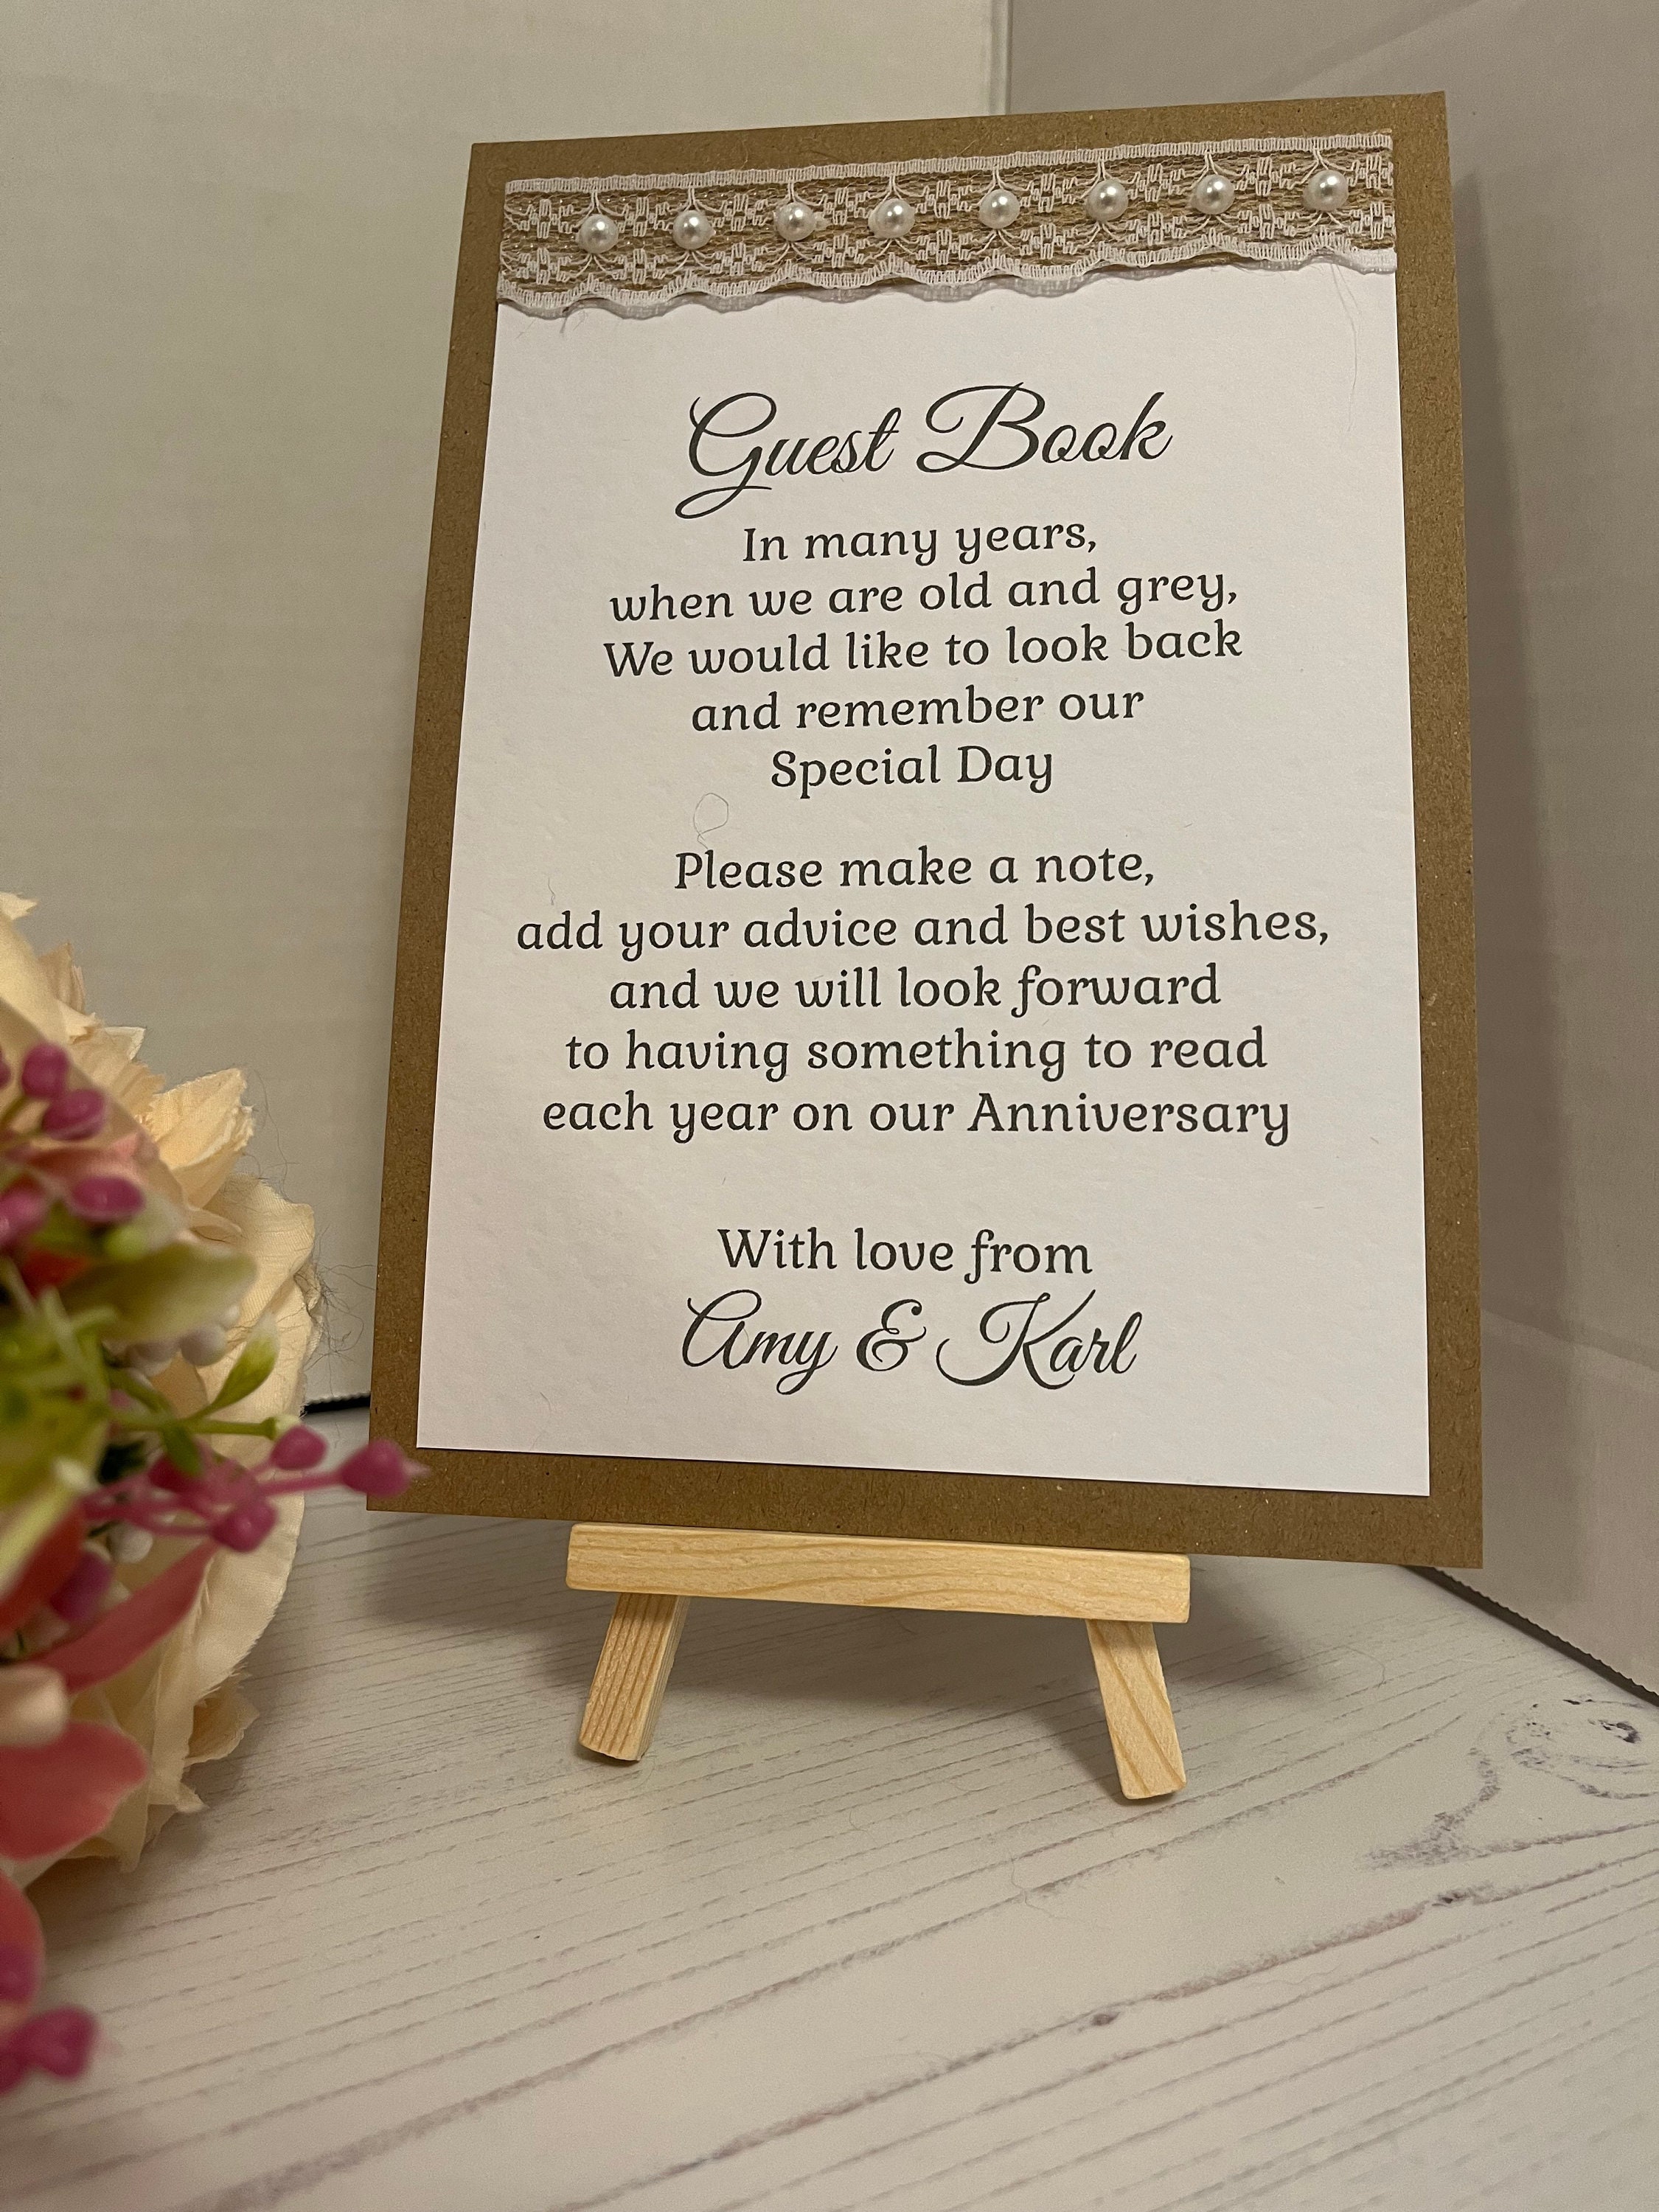 Guest Book
In many years,
when we are old and grey,
We would like to look back
and remember our
Special Day
Please make a note,
add your advice and best wishes,
and we will look forward
to having something to read
each year on our Anniversary
With love from
Amy & Karl